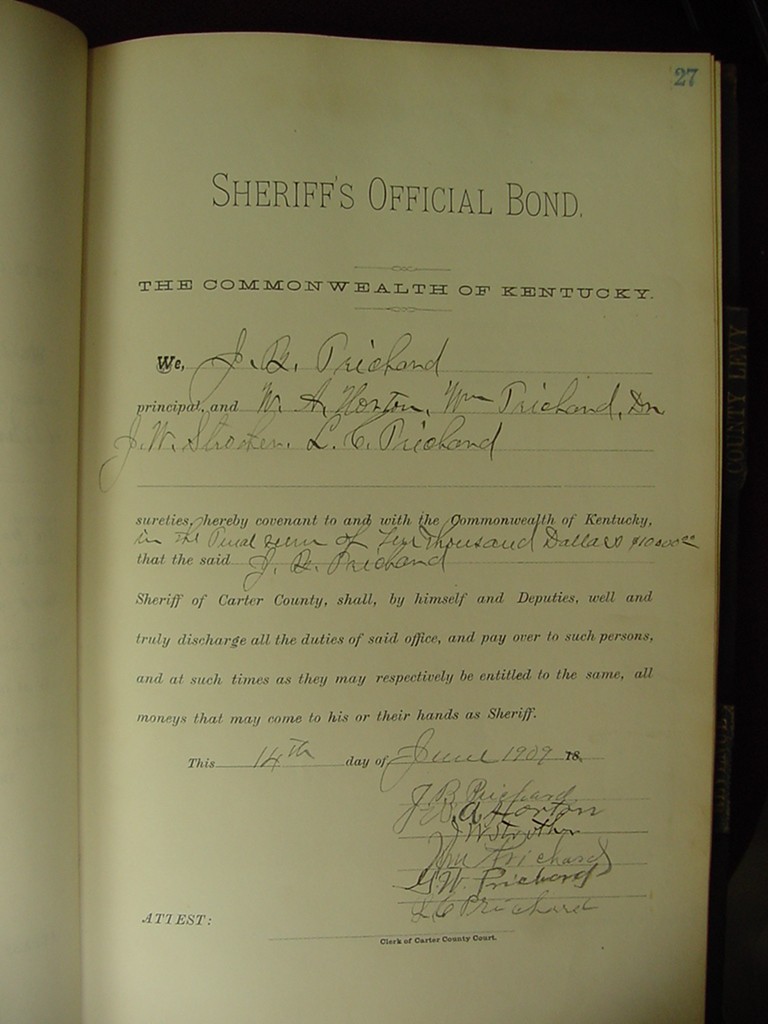 27
SHERIFF'S OFFICIAL BOND.
THE COMMONWEALTH OF KENTUCKY.
We, J. B. Prichard
principal, and W. A. Horton, Wm Prichard,
J. W. Strother. L. C. Prichard
sureties, hereby covenant to and with the Commonwealth of Kentucky,
in the Penal sum of Ten Thousand Dollars $10000.00
that the said J. B. Prichard
Sheriff of Carter County, shall, by himself and Deputies, well and
truly discharge all the duties of said office, and pay over to such persons,
and at such times as they may respectively be entitled to the same, all
moneys that may come to his or their hands as Sheriff.
This 14th day of June 1909 18
J B Prichard
W. A Horton
J W Strother
Wm Prichard
G. W. Prichard
L C Prichard
ATTEST:
Clerk of Carter County Court.
COUNTY LEVY